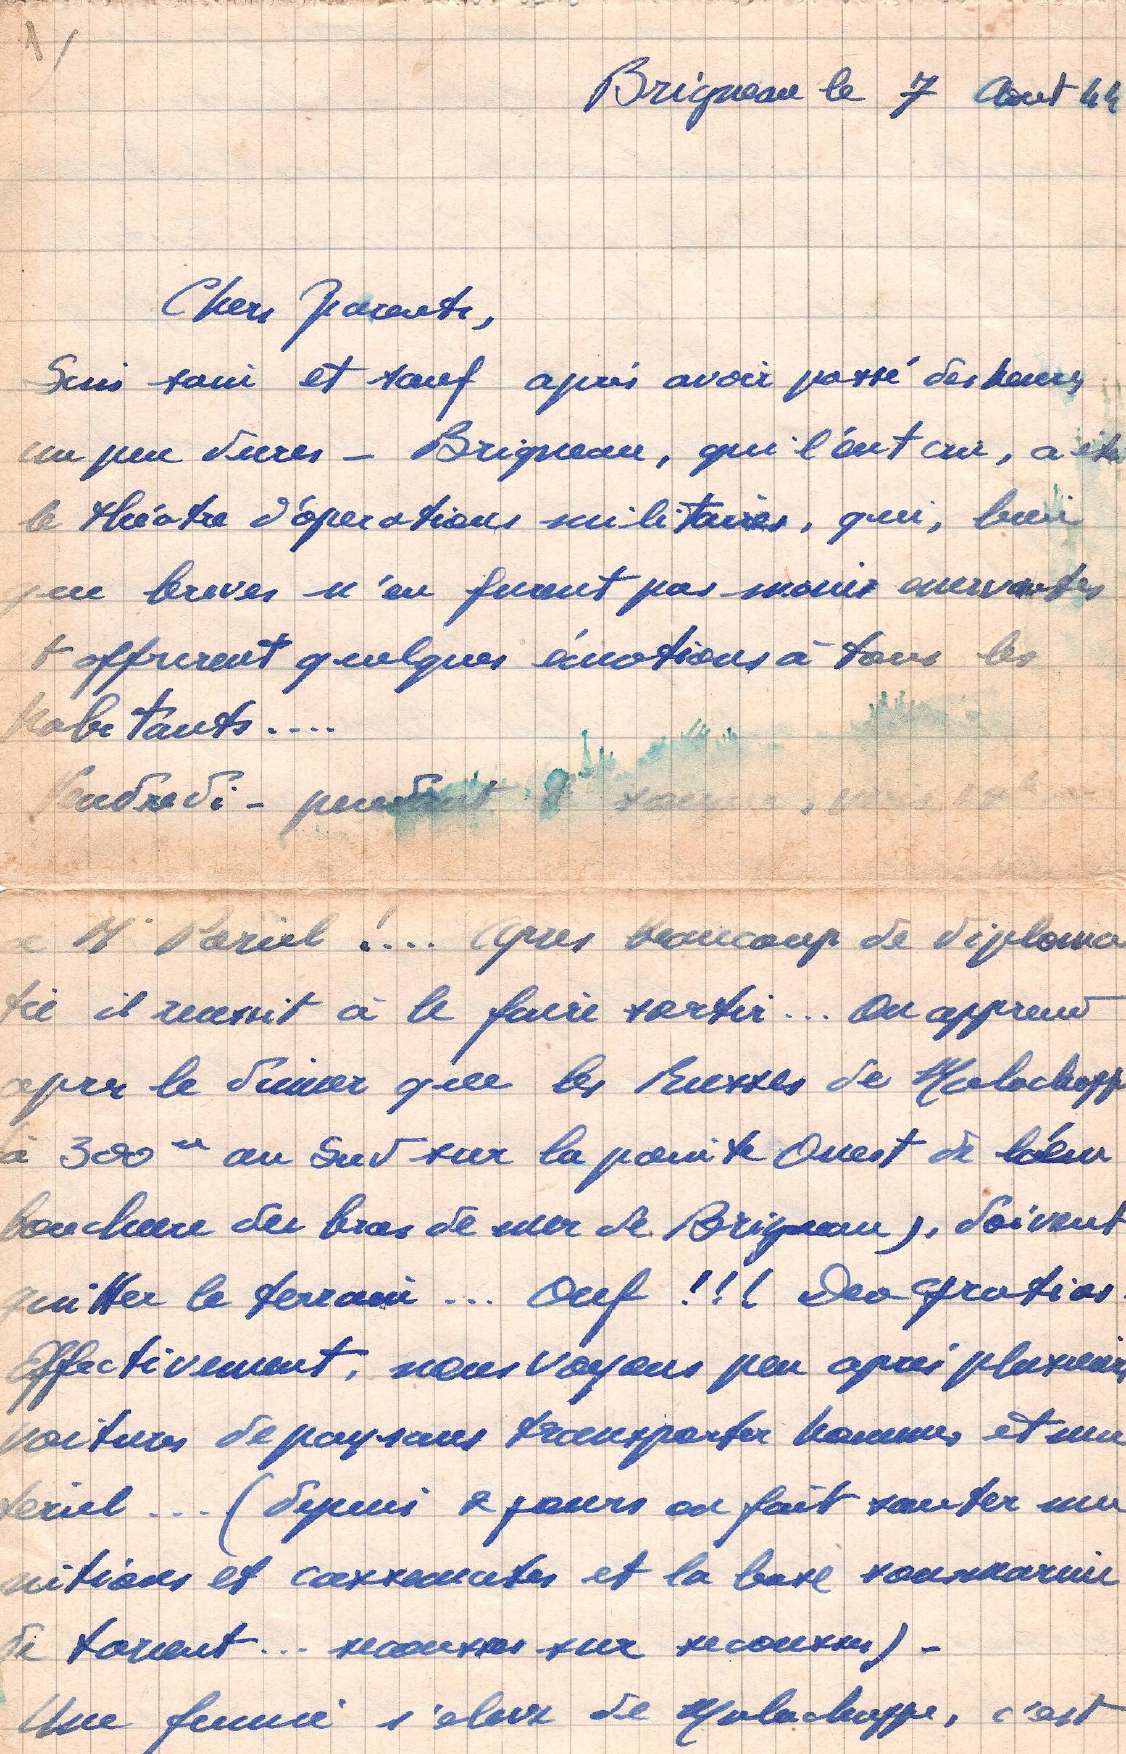 1/
Brigneau le 7 Aout 44
Chers Parents,
Suis sain et sauf après avoir passé des heures
un peu dures - Brigneau, qui l'eut cru, a été
le théatre d'óperations militaires, qui, bien
que breves n'en furent pas moins enervantes
et offrirent quelques émotions à tous les
habitants....
Vendredi - pendant
a Mr Pariel !... Apres beaucoup de diploma
tie il reussit à le faire sortir... On apprend
apres le diner que les Russes de Malachappe
à 300 m au Sud sur la pointe Ouest de l'ém
bouchure du bras de mer de Brigneau), doivent
quitter le terrain ... Ouf !!! Deo Gratias.
Effectivement, nous voyons peu après plusieurs
voitures de paysans transporter hommes et ma
teriel ... (depuis 2 jours on fait sauter mu
nitions et casemates et la base sousmarine
de Lorient... secousses sur secousses) -
Une fumée s'eleve de Malachappe, c'est